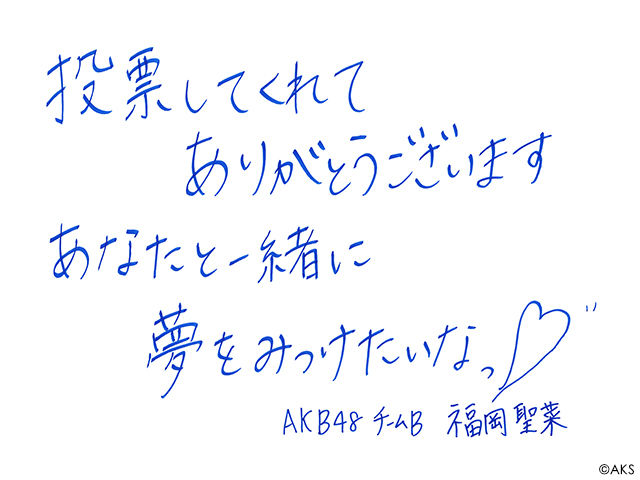 投票してくれて
ありがとうございます
あなたと一緒に
夢をみつけたいなっ♡
AKB48 チームB 福岡聖菜
©AKS